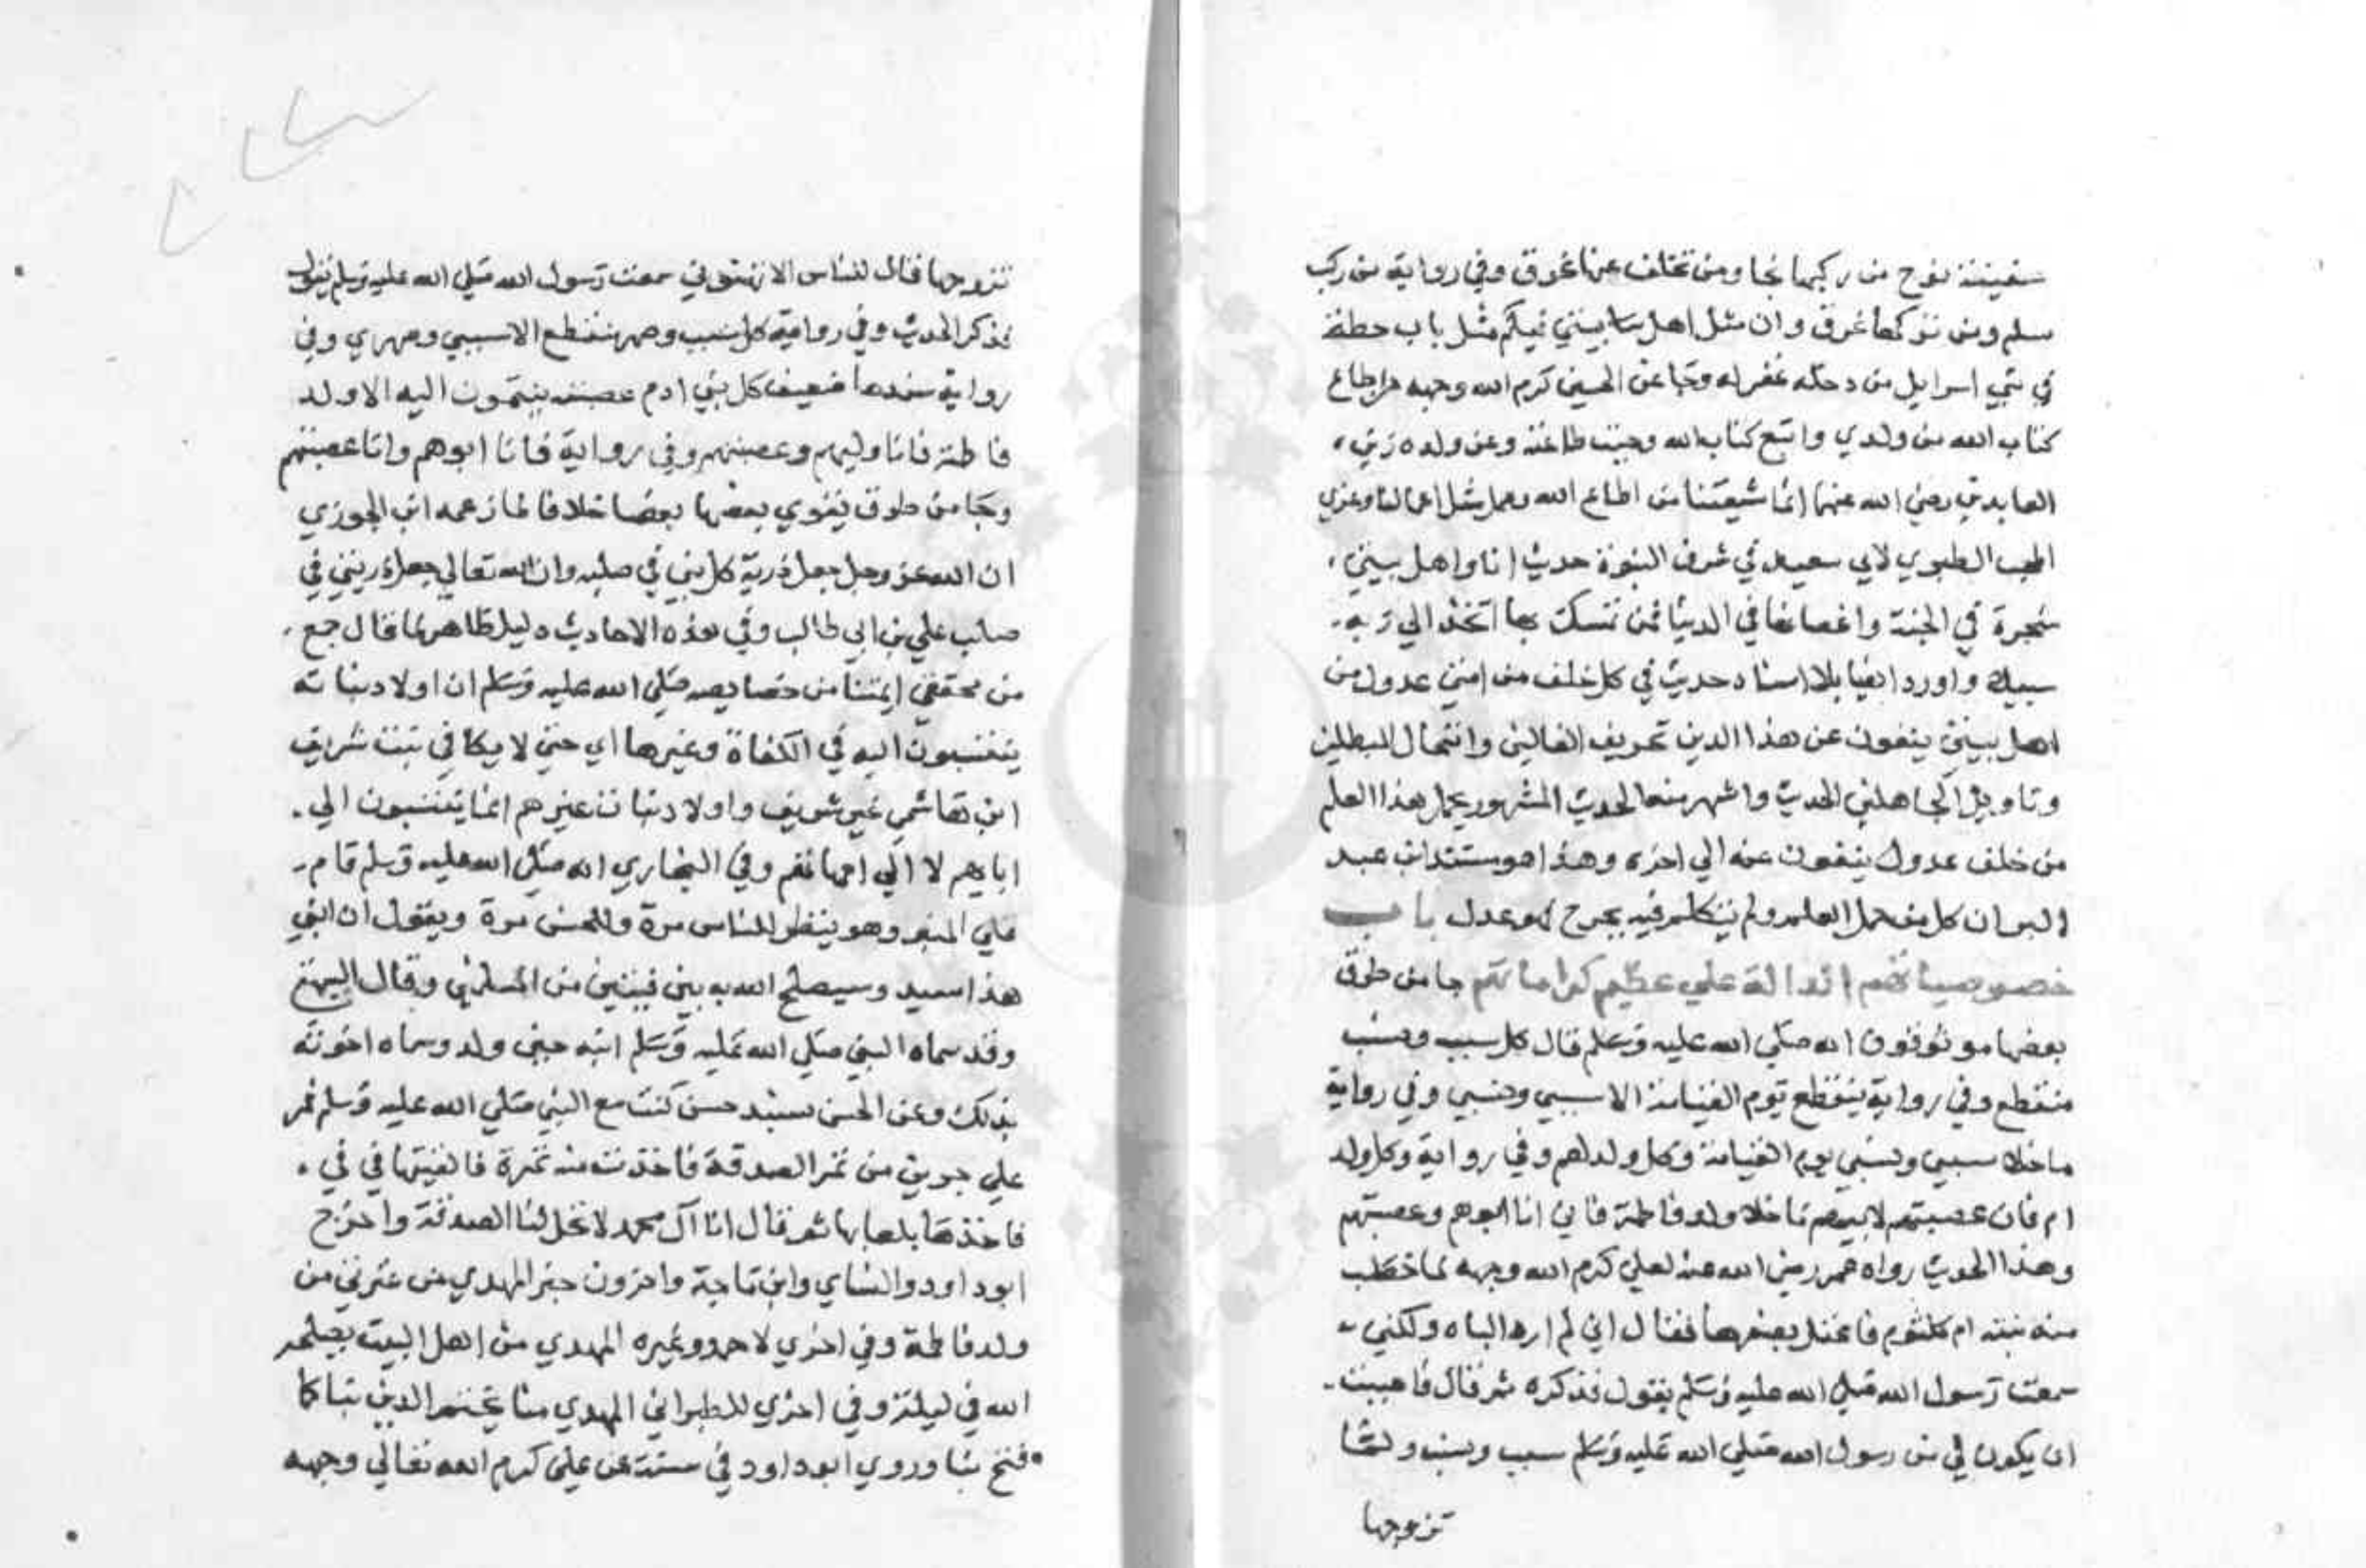 سفينة نوح من ركبها نجا ومن تخلف عنها غرق وفي رواية من ركب
سلم ومن تركها غرق وان مثل اهل بيتي فيكم مثل باب حطة
في بني اسرايل من دخله غفر له وجا عن الحسين كرم الله وجهه من اطاع
كتاب الله من ولدي واتبع كتاب الله وجبت طاعته وعن ولده زين
العابدين رضي الله عنهما انما شيعتنا من اطاع الله وعمل مثل اعمالنا وعزي
المحب الطبري لابي سعيد في شرف النبوة حديث انا واهل بيتي
شجرة في الجنة واغصانها في الدنيا فمن تمسك بها اتخذ الي ربه
سبيلا واورد ايضا بلا اسناد حديث في كل خلف من امتي عدول من
اهل بيتي ينفون عن هذا الدين تحريف الغالين وانتحال المبطلين
وتاويل الجاهلين الحديث واشهر منه الحديث المشهور يحمل هذا العلم
من خلف عدول ينفون عنه الي اخره وهذا هو مستند ابن عبد
البر ان كل من حمل العلم ولم يتكلم فيه بجرح فهو عدل باب
خصوصياتهم الدالة علي عظيم كراماتهم جا من طرق
بعضها موثوقون انه صلي الله عليه وسلم قال كل سبب ونسب
منقطع وفي رواية ينقطع يوم القيامة الا سببي ونسبي وفي رواية
ما خلا سببي ونسبي يوم القيامة وكل ولد لهم وفي رواية وكل ولد
ام فان عصبتهم لابيهم ما خلا ولد فاطمة فاني انا ابوهم وعصبتهم
وهذا الحديث رواه عمر رضي الله عنه لعلي كرم الله وجهه لما خطب
منه بنته ام كلثوم فاعتل بصغرها فقال اني لم ارد الباه ولكني
سمعت رسول الله صلي الله عليه وسلم يقول فذكره ثم قال فاحببت
ان يكون لي من رسول الله صلي الله عليه وسلم سبب ونسب ولما
تزوجها
تزوجها قال للناس الا تهنوني سمعت رسول الله صلي الله عليه وسلم يقول
فذكر الحديث وفي رواية كل سبب وصهر منقطع الا سببي وصهري وفي
رواية سندها ضعيف كل بني ادم عصبة ينتمون اليه الا ولد
فاطمة فانا وليهم وعصبتهم وفي رواية فانا ابوهم وانا عصبتهم
وجا من طرق يقوي بعضها بعضا خلافا لما زعمه ابن الجوزي
ان الله عز وجل جعل ذرية كل نبي في صلبه وان الله تعالي جعل ذريتي في
صلب علي بن ابي طالب وفي هذه الاحاديث دليل ظاهر لما قال جمع
من محققي ايمتنا من خصايصه صلي الله عليه وسلم ان اولاد بناته
ينتسبون اليه في الكفاة وغيرها اي حتي لا يكافي بنت شريف
ابن هاشمي غير شريف واولاد بنات غيرهم انما ينتسبون الي
ابايهم لا الي امهاتهم وفي البخاري انه صلي الله عليه وسلم قام
علي المنبر وهو ينظر للناس مرة وللحسن مرة ويقول ان ابني
هذا سيد وسيصلح الله به بين فيتين من المسلمين وقال البيهقي
وقد سماه النبي صلي الله عليه وسلم ابنه حين ولد وسماه اخوته
بذلك وعن الحسن بسند حسن كنت مع النبي صلي الله عليه وسلم فمر
علي جرين من تمر الصدقة فاخذت منه تمرة فالقيتها في في
فاخذها بلعابها ثم قال انا آل محمد لا تحل لنا الصدقة واخرج
ابو داود والنساي وابن ماجة واخرون خبر المهدي من عترتي من
ولد فاطمة وفي اخري لاحمد وغيره المهدي من اهل البيت يصلحه
الله في ليلة وفي اخري للطبراني المهدي منا يختم الدين بنا كما
فتح بنا وروي ابو داود في سننه عن علي كرم الله تعالي وجهه